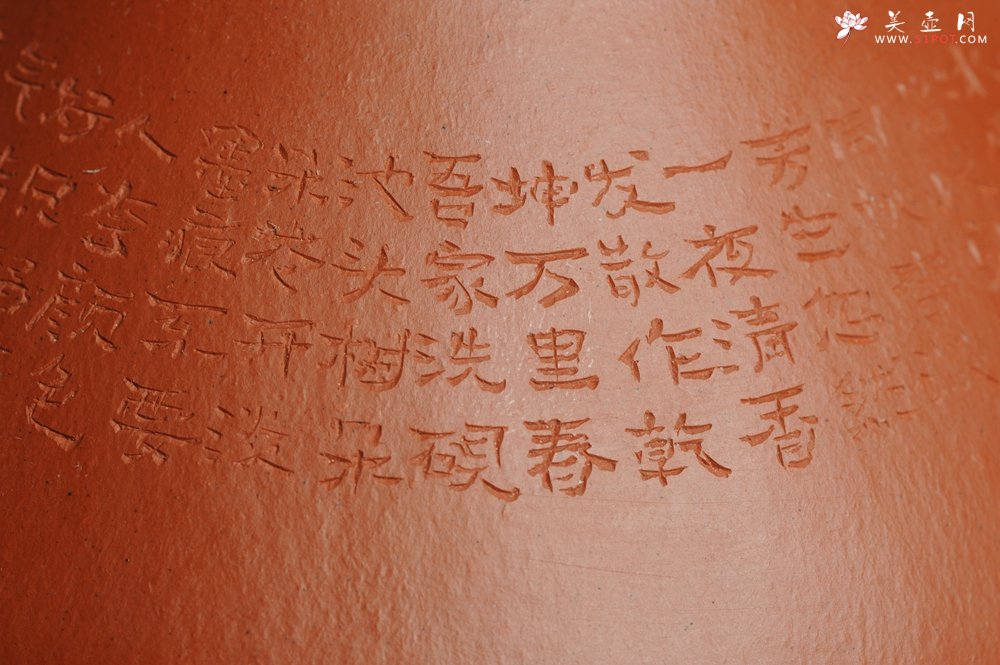 芳尘忽然
一夜清香
发散作乾
坤万里春
吾家洗砚
池头树朵
朵花开淡
墨痕不要
人夸颜色
好只留
气
美壶网
WWW.51POT.COM